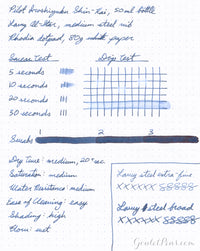 Pilot Iroshizuku Shin-Kai, 50ml bottle
Lamy Al-Star, medium steel nib
Rhodia dotpad, 80g white paper
Smear Test Drip Test
5 seconds
10 seconds
20 seconds
30 seconds
Swab 1 2 3
Dry Time: medium, 20+ sec.
Saturation: medium
Water Resistance: medium
Ease of Cleaning: easy
Shading: high
Flow: wet
Lamy steel extra-fine
xxxxxx 888888
Lamy steel broad
xxxxxx 888888
GouletPens.com